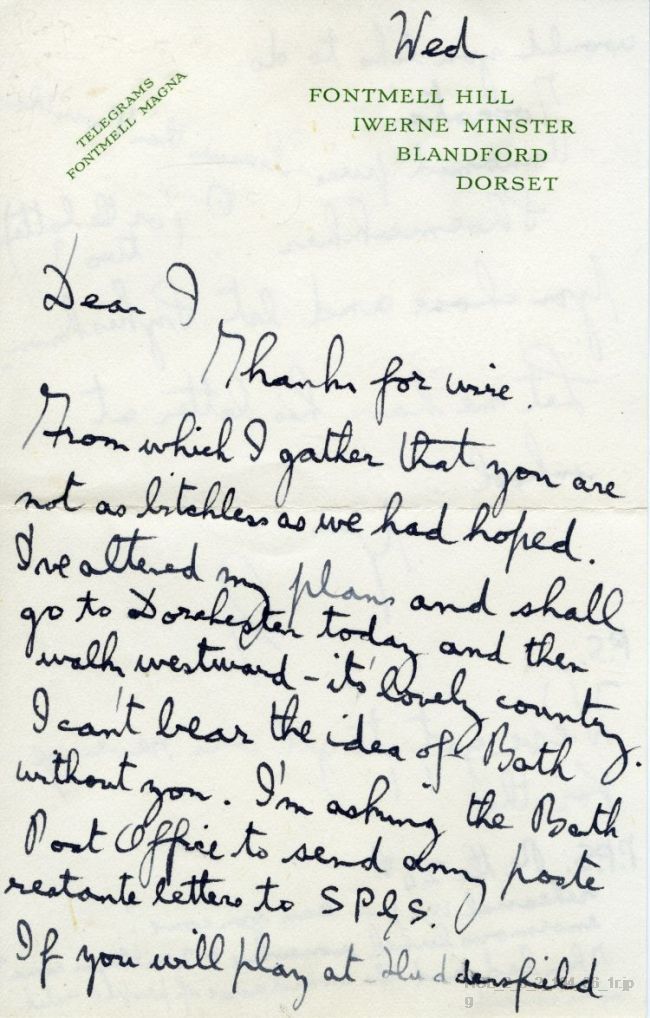 Wed
TELEGRAMS
FONTMELL MAGNA
FONTMELL HILL
IWERNE MINSTER
BLANDFORD
DORSET
Dear I
Thanks for wire.
From which I gather that you are
not as bitchless as we had hoped.
I've altered my plans and shall
go to Dorchester today and then
walk westward - it's lovely country.
I can't bear the idea of Bath
without you. I'm asking the Bath
Post Office to send any poste
restante letters to SPGS.
If you will play at Huddersfield